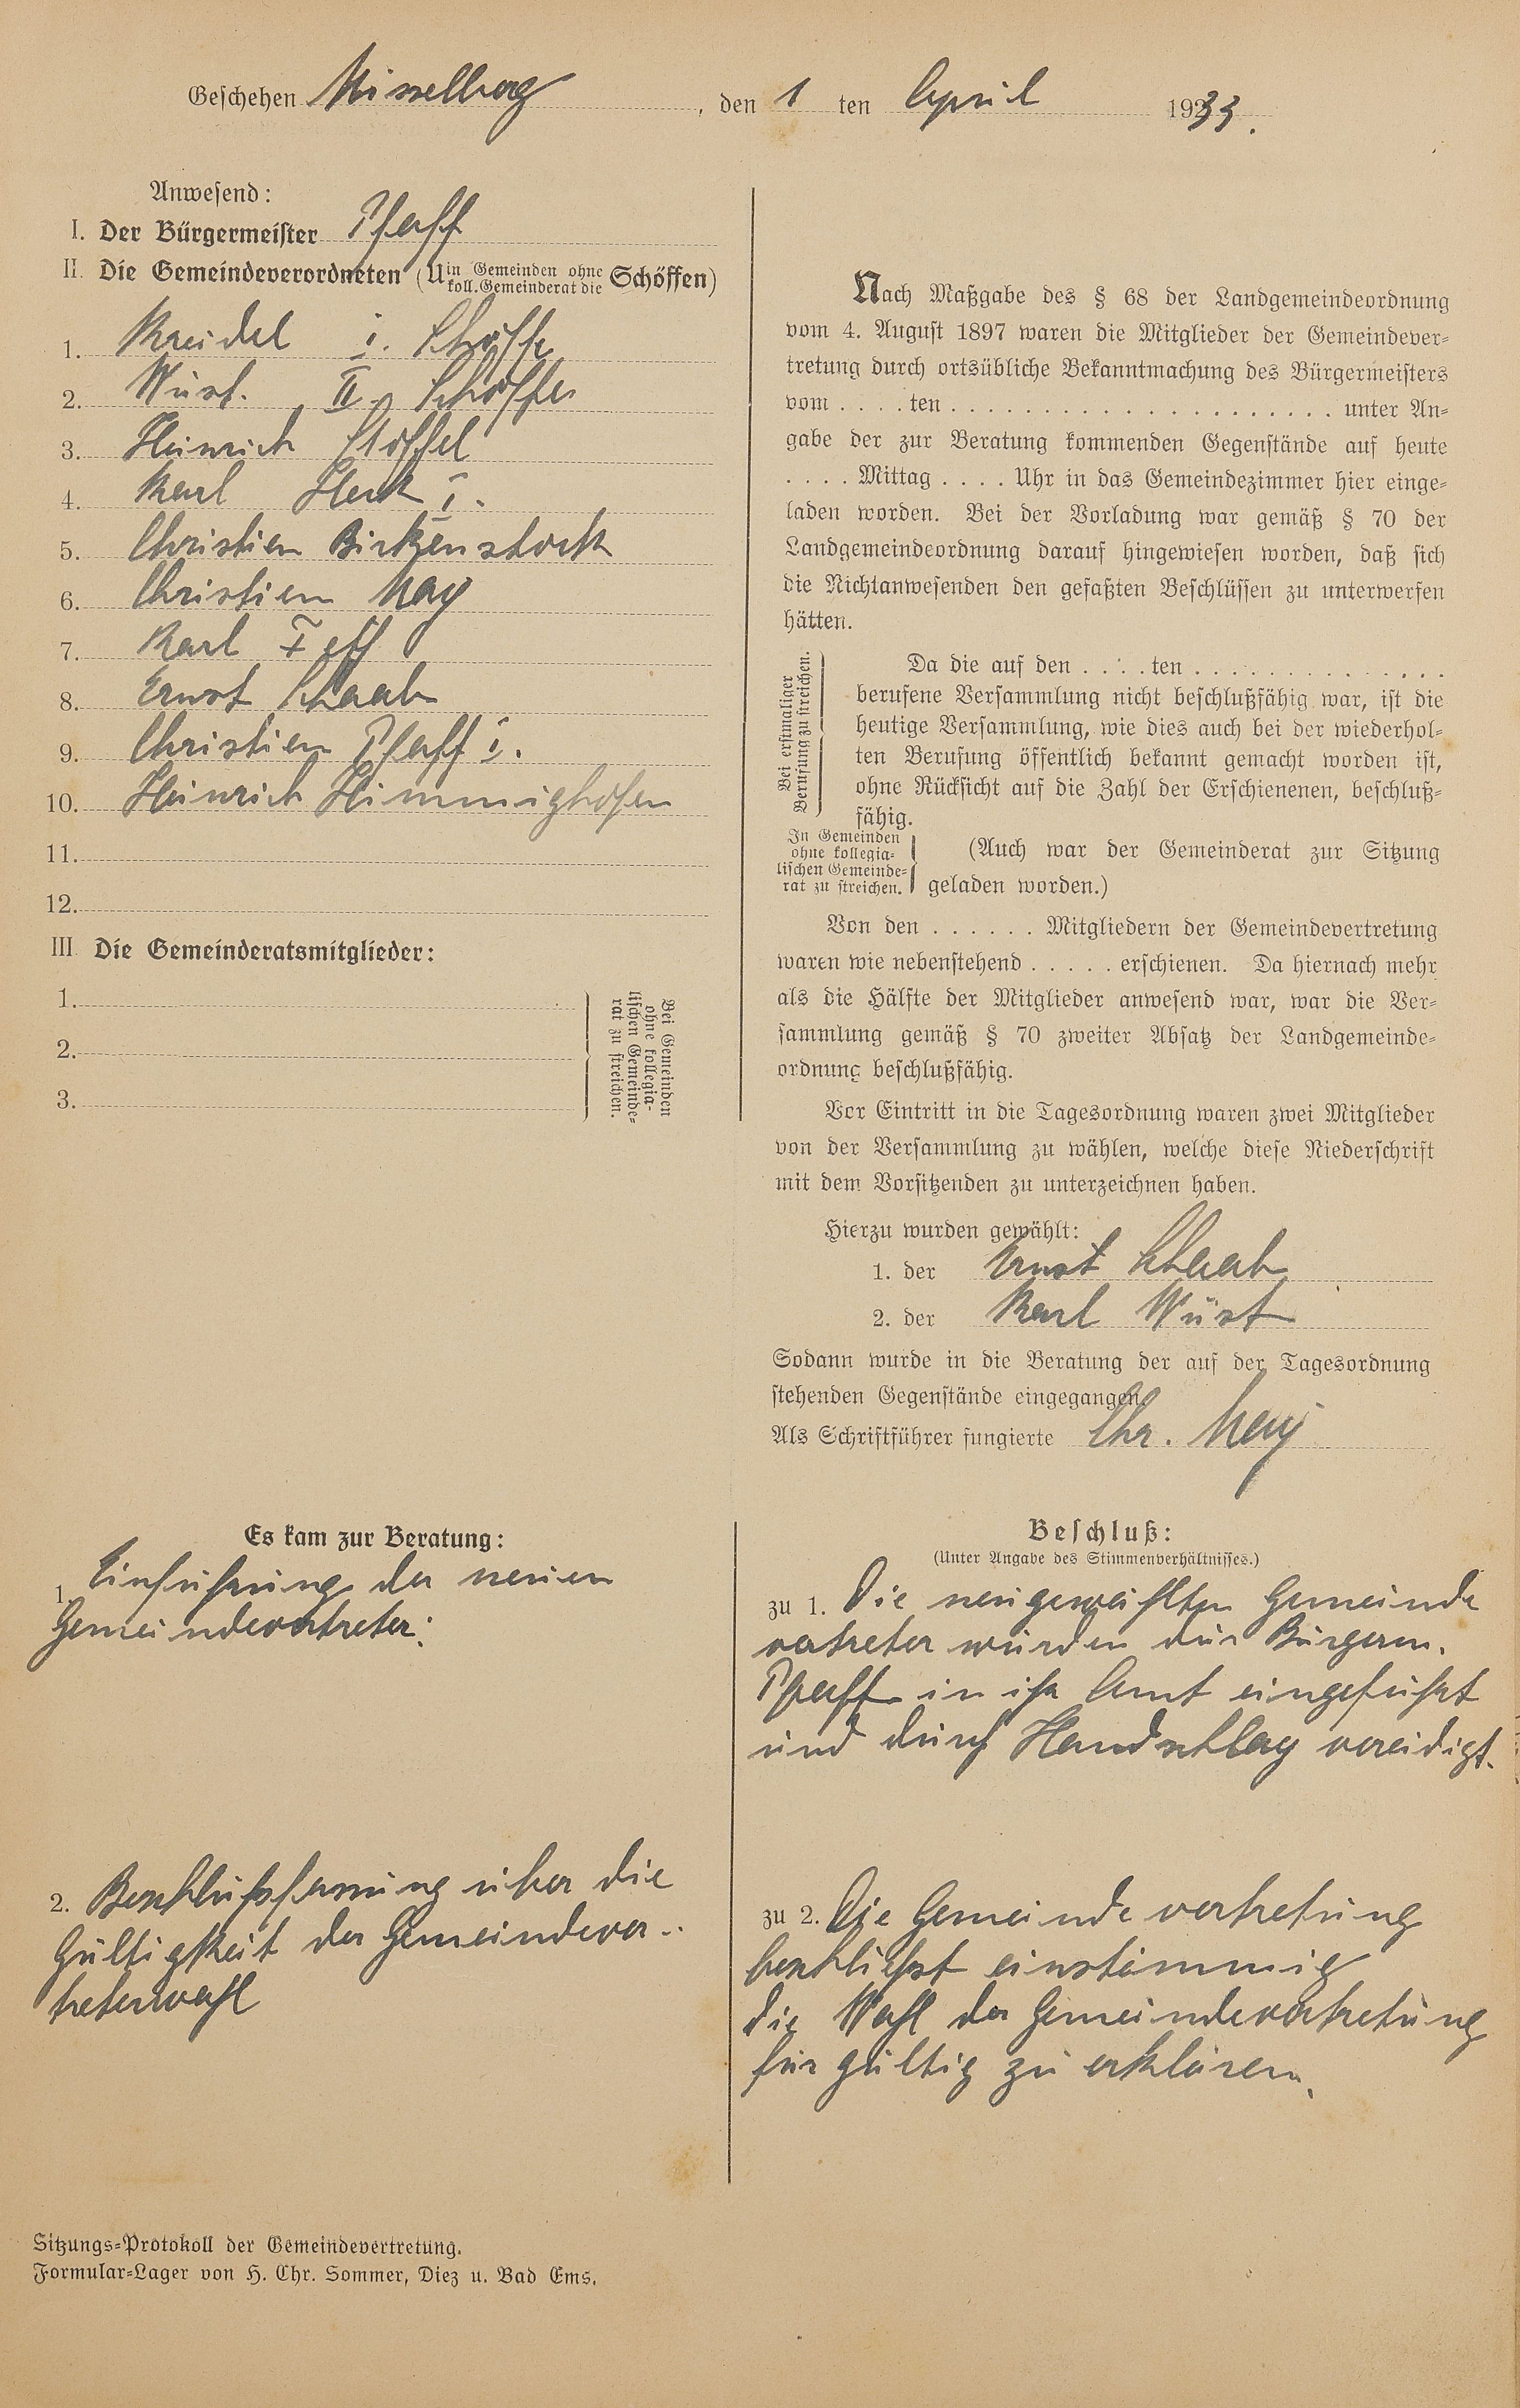 Geschehen Misselberg, den 1 ten April 1933.
Anwesend:
I. Der Bürgermeister Pfaff
II. Die Gemeindeverordneten (U in Gemeinden ohne koll. Gemeinderat die Schöffen)
1. Kreidel I. Schöffe
2. Wüst. II. Schöffen
3. Heinrich Stöffel
4. Karl Heck I.
5. Christian Birkenstock
6. Christian May
7. Karl
8. Ernst Schaab
9. Christian Pfaff I.
10. Heinrich Himmighofen
11.
12.
III Die Gemeinderatsmitglieder:
1.
2.
3.
Bei Gemeinden
ohne kollegia-
lischen Gemeinde-
rat zu streichen.
Nach Maßgabe des § 68 der Landgemeindeordnung
vom 4. August 1897 waren die Mitglieder der Gemeindever-
tretung durch ortsübliche Bekanntmachung des Bürgermeisters
vom . . . . ten . . . . . . . . . . . . . . . . . . . . . unter An-
gabe der zur Beratung kommenden Gegenstände auf heute
. . . . Mittag . . . . Uhr in das Gemeindezimmer hier einge-
laden worden. Bei der Vorladung war gemäß § 70 der
Landgemeindeordnung darauf hingewiesen worden, daß sich
die Nichtanwesenden den gefaßten Beschlüssen zu unterwerfen
hätten.
Bei erstmaliger
Berufung zu streichen.
Da die auf den . . . . ten . . . . . . . . . . . . . .
berufene Versammlung nicht beschlußfähig war, ist die
heutige Versammlung, wie dies auch bei der wiederhol-
ten Berufung öffentlich bekannt gemacht worden ist,
ohne Rücksicht auf die Zahl der Erschienenen, beschluß-
fähig.
In Gemeinden
ohne kollegia-
lischen Gemeinde-
rat zu streichen.
(Auch war der Gemeinderat zur Sitzung
geladen worden.)
Von den . . . . . . Mitgliedern der Gemeindevertretung
waren wie nebenstehend . . . . . erschienen. Da hiernach mehr
als die Hälfte der Mitglieder anwesend war, war die Ver-
sammlung gemäß § 70 zweiter Absatz der Landgemeinde-
ordnung beschlußfähig.
Vor Eintritt in die Tagesordnung waren zwei Mitglieder
von der Versammlung zu wählen, welche diese Niederschrift
mit dem Vorsitzenden zu unterzeichnen haben.
Hierzu wurden gewählt:
1. der Ernst Schaab
2. der Karl Wüst
Sodann wurde in die Beratung der auf der Tagesordnung
stehenden Gegenstände eingegangen.
Als Schriftführer fungierte Chr. May
Es kam zur Beratung:
1. Einführung der neuen
Gemeindevertreter:
2. Beschlußfassung über die
Gültigkeit der Gemeindever-
treterwahl
Beschluß:
(Unter Angabe des Stimmenverhältnisses.)
zu 1. Die neugewählten Gemeinde
vertreter wurden dur Bürgerm.
Pfaff in ihr Amt eingeführt
und durch Handschlag vereidigt.
zu 2. Die Gemeindevertretung
beschließt einstimmig
die Wahl der Gemeindevertretung
für gültig zu erklären.
Sitzungs-Protokoll der Gemeindevertretung.
Formular-Lager von H. Chr. Sommer, Diez u. Bad Ems.